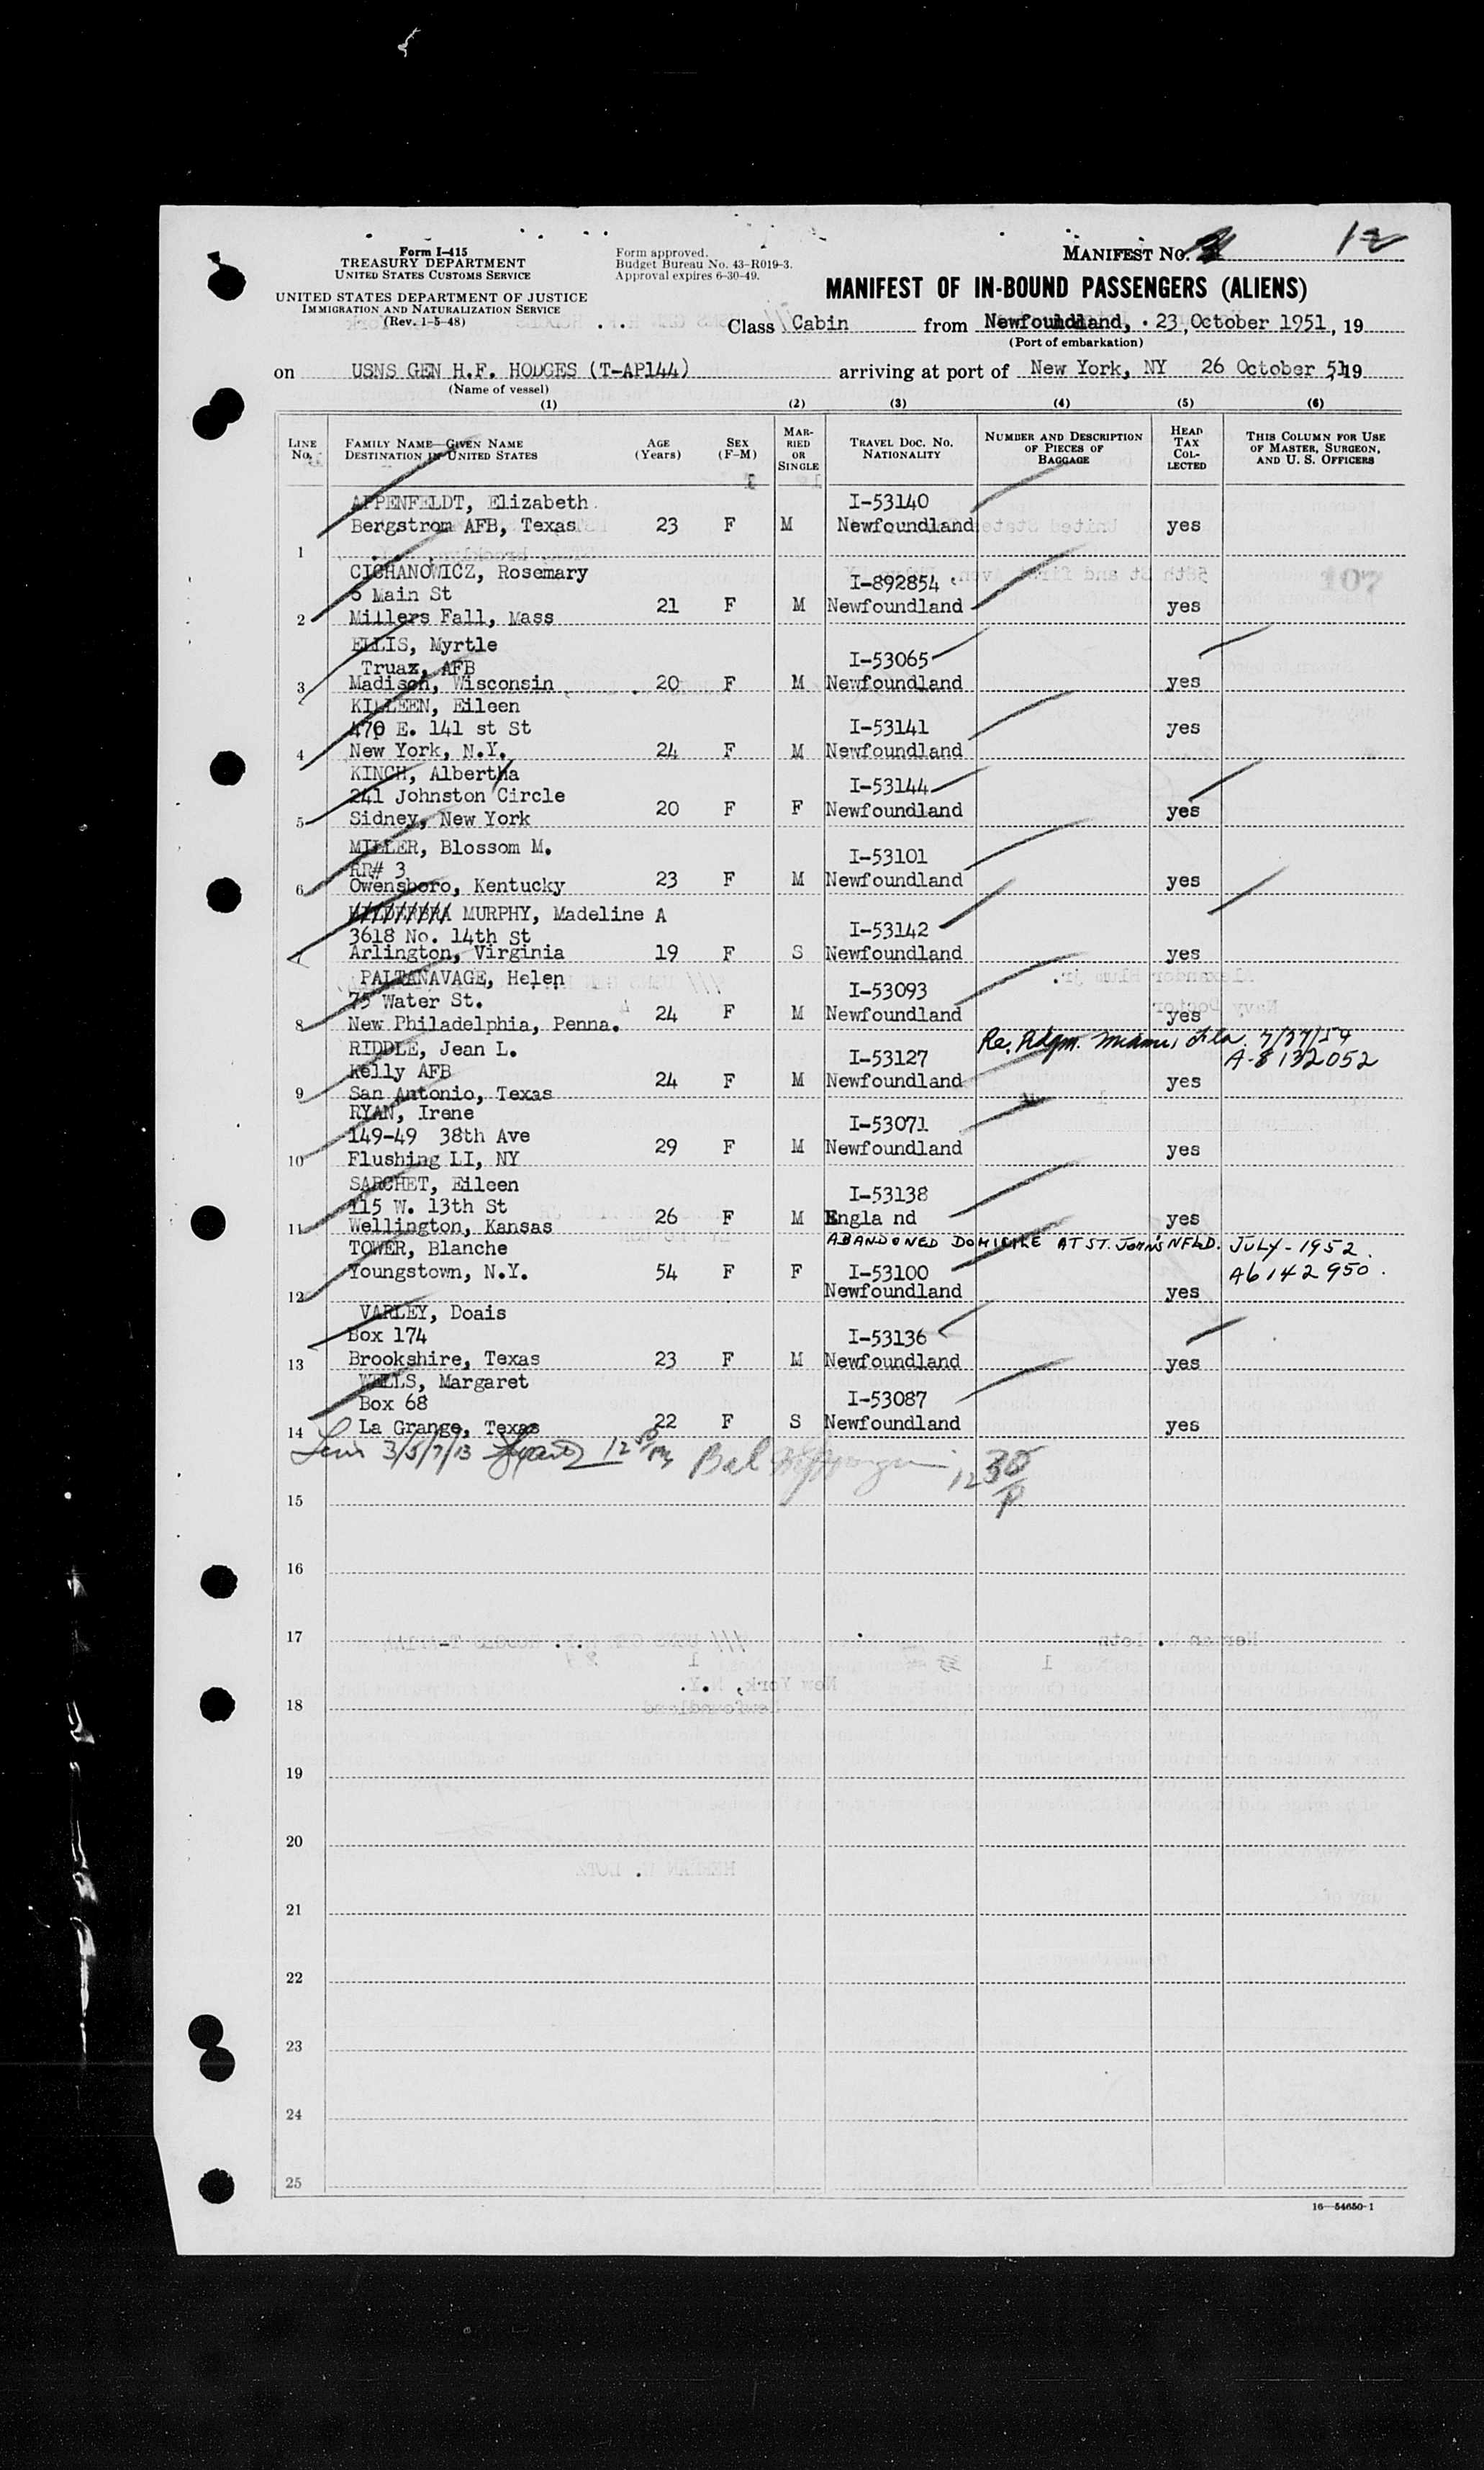 Form I-415
TREASURY DEPARTMENT
UNITED STATES CUSTOMS SERVICE
UNITED STATES DEPARTMENT OF JUSTICE
IMMIGRATION AND NATURALIZATION SERVICE
(Rev. 1-5-48)
Form approved.
Budget Bureau No. 43-R019-3.
Approval expires 6-30-49.
MANIFEST NO. 12
MANIFEST OF IN-BOUND PASSENGERS (ALIENS)
Class Cabin from Newfoundland, 23, October 1951, 19
(Port of embarkation)
on USNS GEN H.F. HODGES (T-AP144) arriving at port of New York, NY 26 October 5119
(Name of vessel)
(1) (2) (3) (4) (5) (6)
LINE NO. FAMILY NAME—GIVEN NAME DESTINATION IN UNITED STATES AGE (Years) SEX (F-M) MARRIED OR SINGLE TRAVEL DOC. NO. NATIONALITY NUMBER AND DESCRIPTION OF PIECES OF BAGGAGE HEAD TAX COLLECTED THIS COLUMN FOR USE OF MASTER, SURGEON, AND U. S. OFFICERS
APPENFELDT, Elizabeth I-53140
Bergstrom AFB, Texas 23 F M Newfoundland yes
1
CICHANOWICZ, Rosemary I-892854
5 Main St
2 Millers Fall, Mass 21 F M Newfoundland yes
ELLIS, Myrtle I-53065
Truax, AFB
3 Madison, Wisconsin 20 F M Newfoundland yes
KILLEEN, Eileen
470 E. 141 st St I-53141 yes
4 New York, N.Y. 24 F M Newfoundland
KINCH, Albertha I-53144
241 Johnston Circle
5 Sidney, New York 20 F F Newfoundland yes
MILLER, Blossom M. I-53101
RR# 3
6 Owensboro, Kentucky 23 F M Newfoundland yes
MURPHY, Madeline A
3618 No. 14th St I-53142
7 Arlington, Virginia 19 F S Newfoundland yes
PALTANAVAGE, Helen I-53093
75 Water St.
8 New Philadelphia, Penna. 24 F M Newfoundland yes
RIDDLE, Jean L. I-53127 Miami, Fla. A-8132052
Kelly AFB
9 San Antonio, Texas 24 F M Newfoundland yes
RYAN, Irene I-53071
149-49 38th Ave
10 Flushing LI, NY 29 F M Newfoundland yes
SARCHET, Eileen I-53138
115 W. 13th St
11 Wellington, Kansas 26 F M Engla nd yes
ABANDONED DOMICILE AT ST. JOHN'S NFLD. JULY-1952.
TOWER, Blanche
Youngstown, N.Y. 54 F F I-53100 A6142950.
12 Newfoundland yes
VARLEY, Doais
Box 174 I-53136
13 Brookshire, Texas 23 F M Newfoundland yes
WELLS, Margaret
Box 68 I-53087
14 La Grange, Texas 22 F S Newfoundland yes
3/5/7/13 12 30 P
15
16
17
18
19
20
21
22
23
24
25
16—54650-1